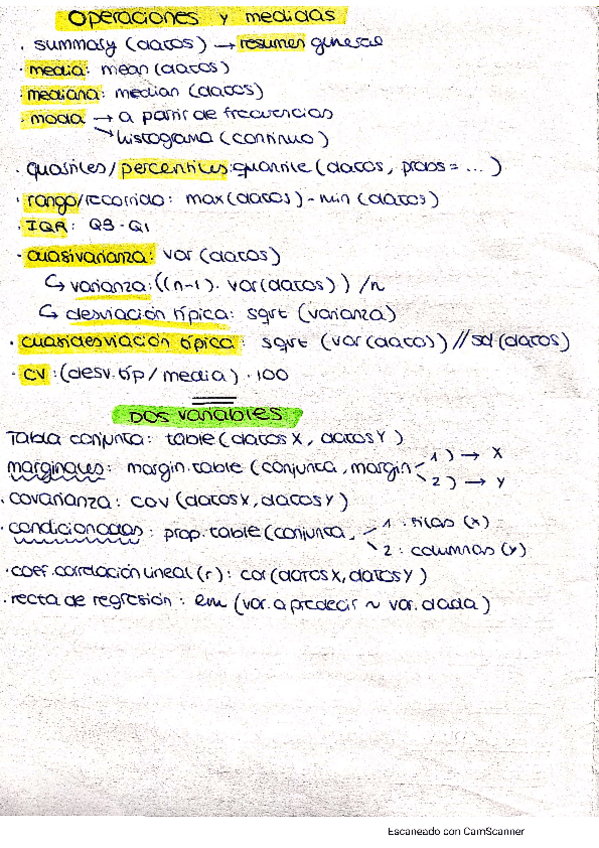 Operaciones y medidas
. summary (datos) → resumen general
· media: mean (datos)
· mediana: median (datos)
· moda → a partir de frecuencias
↘ histograma (continuo)
· quartiles/percentiles: quantile (datos, probs = ... )
· rango/recorrido: max (datos) - min (datos)
· IQR: Q3 - Q1
· cuasivarianza: var (datos)
↳ varianza: ((n-1) · var(datos)) / n
↳ desviación típica: sqrt (varianza)
· cuasidesviación típica: sqrt (var(datos)) // sd (datos)
· CV: (desv. tip / media) · 100
DOS variables
Tabla conjunta: table (datos X, datos Y)
marginales: margin.table (conjunta, margin 1 ) → X
2 ) → Y
. covarianza: cov (datos X, datos Y)
· condicionadas: prop.table (conjunta, 1 · filas (x)
2 : columnas (y)
· coef. correlación lineal (r) : cor (datos X, datos Y)
· recta de regresión : lm (var. a predecir ~ var. dada)
Escaneado con CamScanner